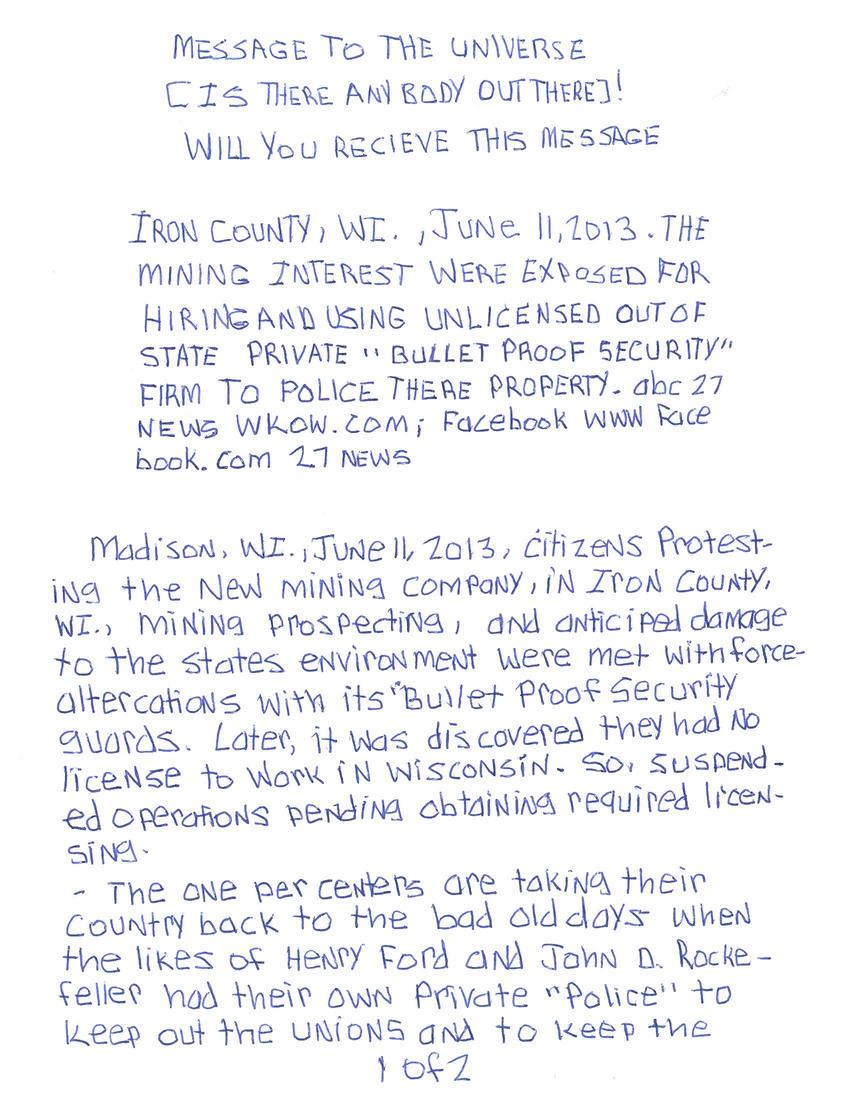 MESSAGE TO THE UNIVERSE
[IS THERE ANY BODY OUT THERE]!
WILL YOU RECIEVE THIS MESSAGE
IRON COUNTY, WI. , JUNE 11, 2013. THE
MINING INTEREST WERE EXPOSED FOR
HIRING AND USING UNLICENSED OUT OF
STATE PRIVATE "BULLET PROOF SECURITY"
FIRM TO POLICE THERE PROPERTY. abc 27
NEWS WKOW.COM; Facebook WWW Face
book.com 27 NEWS
Madison, WI., JUNE 11, 2013, citizens Protest-
ing the New mining company, in Iron County,
WI., mining prospecting, and anticiped damage
to the states environment were met with force-
altercations with its "Bullet Proof Security
guards. Later, it was discovered they had no
license to work in Wisconsin. So, suspend-
ed operations pending obtaining required licen-
sing.
- The one per centers are taking their
country back to the bad old days when
the likes of Henry Ford and John D. Rocke-
feller had their own private "police" to
keep out the unions and to keep the
1 of 2